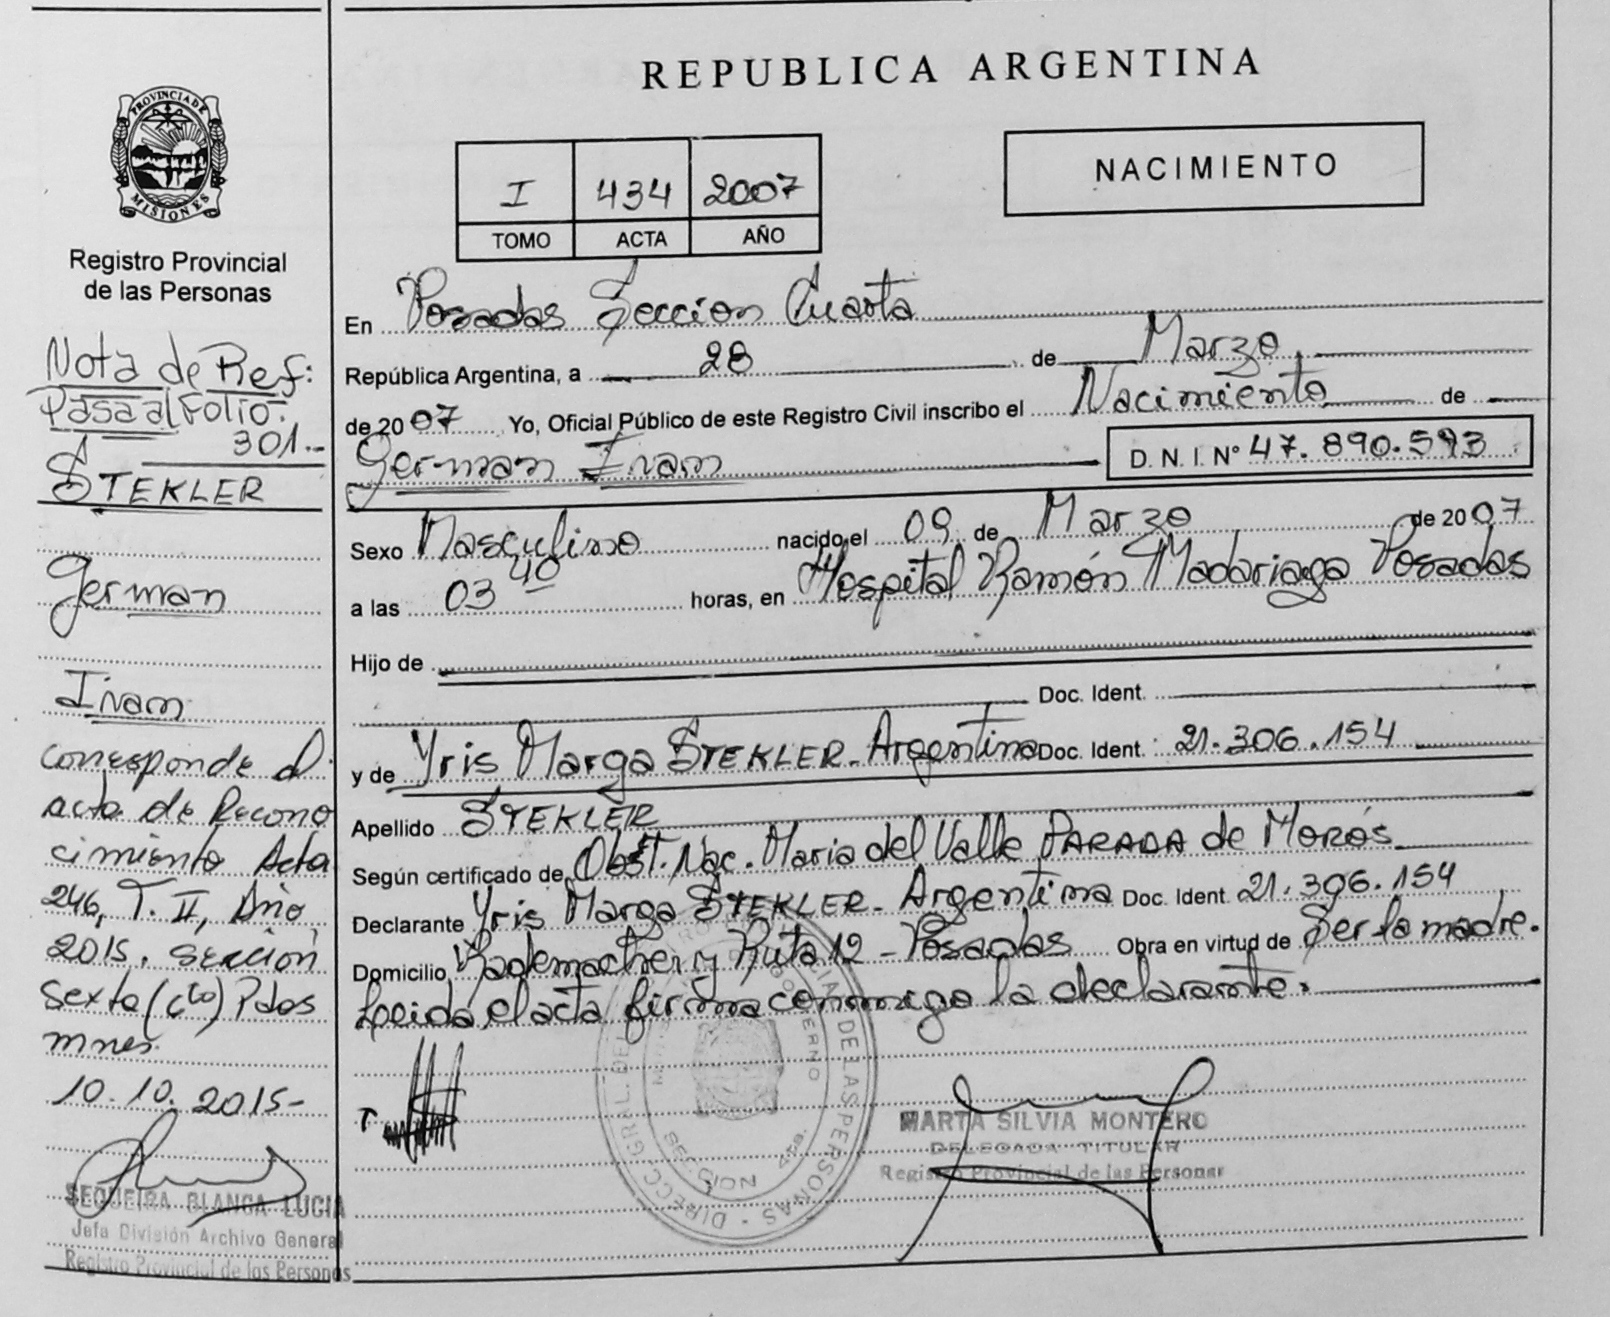 REPUBLICA ARGENTINA
PROVINCIA DE
MISIONES
Registro Provincial
de las Personas
I 434 2007
TOMO ACTA AÑO
NACIMIENTO
Nota de Ref:
Pasa al Folio:
301.-
STEKLER
German
Ivam
corresponde al
acta de Recono
cimiento Acta
246, T. II, Año
2015. sección
sexta (6ta) Pdas
mnes.
10.10.2015-
SEQUEIRA BLANCA LUCIA
Jefa División Archivo General
Registro Provincial de las Personas
En Posadas Seccion Cuarta
República Argentina, a 28 de Marzo
de 2007 Yo, Oficial Público de este Registro Civil inscribo el Nacimiento de
German Ivam D. N. I. Nº 47.890.593
Sexo Masculino nacido el 09 de Marzo de 2007
a las 03 40 horas, en Hospital Ramón Madariaga Posadas
Hijo de
Doc. Ident.
y de Yris Marga STEKLER- Argentina Doc. Ident. 21.306.154
Apellido STEKLER
Según certificado de Obst. Nac. Maria del Valle PARADA de MORÓS
Declarante Yris Marga STEKLER- Argentina Doc. Ident. 21.306.154
Domicilio Rademacher y Ruta 12 - Posadas Obra en virtud de Ser la madre.
Leida el acta firma conmigo la declarante.
MARTA SILVIA MONTERO
DELEGADA TITULAR
Registro Provincial de las Personas